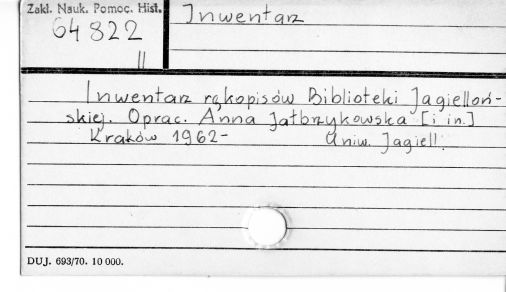 Zakł. Nauk. Pomoc. Hist.
64 822
II
Inwentarz
Inwentarz rękopisów Biblioteki Jagielloń-
skiej. Oprac. Anna Jałbrzykowska [i in.]
Kraków 1962- Uniw. Jagiell.
DUJ. 693/70. 10 000.